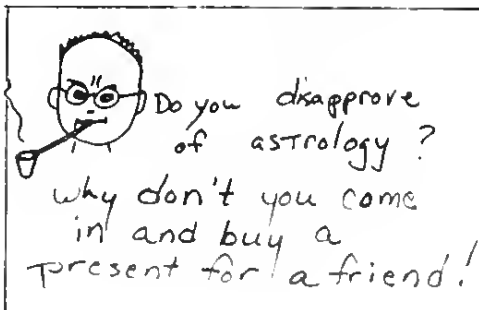 Do you disapprove
of astrology?
Why don't you come
in and buy a
present for a friend!